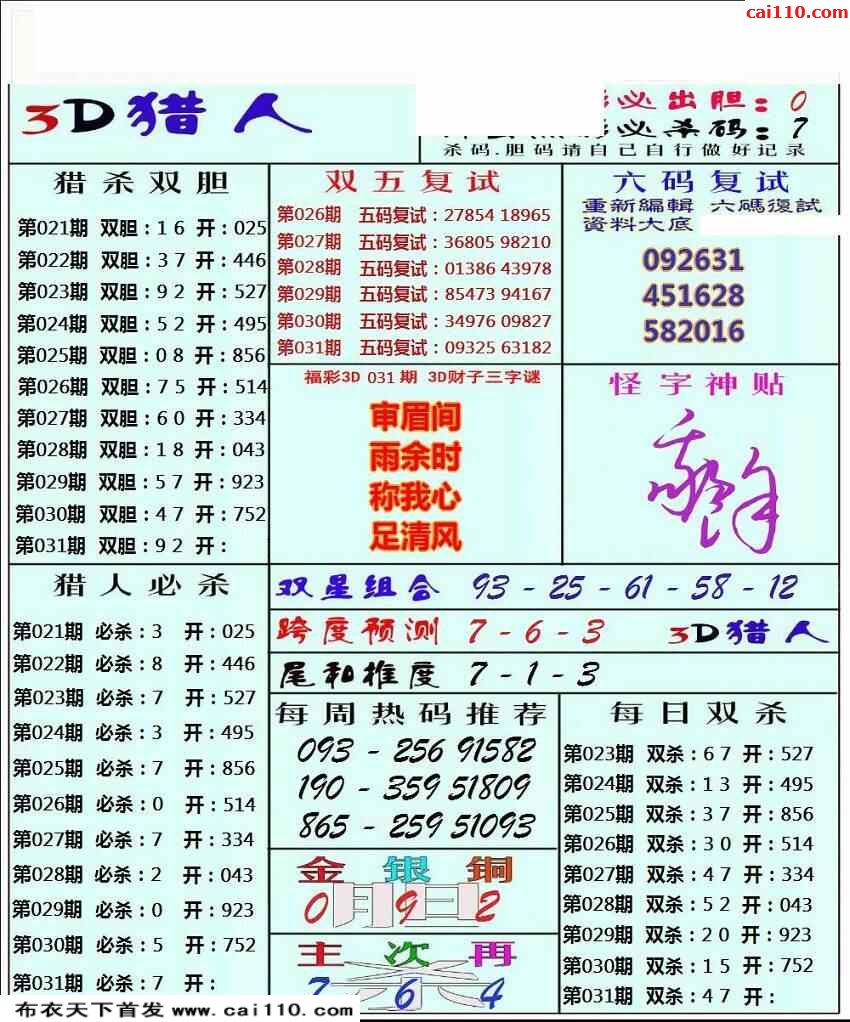 cai110.com
3D猎人
必出胆：0
必杀码：7
杀码.胆码请自己自行做好记录
猎杀双胆
第021期 双胆：16 开：025
第022期 双胆：37 开：446
第023期 双胆：92 开：527
第024期 双胆：52 开：495
第025期 双胆：08 开：856
第026期 双胆：75 开：514
第027期 双胆：60 开：334
第028期 双胆：18 开：043
第029期 双胆：57 开：923
第030期 双胆：47 开：752
第031期 双胆：92 开：
双五复试
第026期 五码复试：27854 18965
第027期 五码复试：36805 98210
第028期 五码复试：01386 43978
第029期 五码复试：85473 94167
第030期 五码复试：34976 09827
第031期 五码复试：09325 63182
六码复试
重新編輯 六碼復試
資料大底
092631
451628
582016
福彩3D 031期 3D财子三字谜
审眉间
雨余时
称我心
足清风
怪字神贴
猎人必杀
第021期 必杀：3 开：025
第022期 必杀：8 开：446
第023期 必杀：7 开：527
第024期 必杀：3 开：495
第025期 必杀：7 开：856
第026期 必杀：0 开：514
第027期 必杀：7 开：334
第028期 必杀：2 开：043
第029期 必杀：0 开：923
第030期 必杀：5 开：752
第031期 必杀：7 开：
双星组合 93 - 25 - 61 - 58 - 12
跨度预测 7 - 6 - 3 3D猎人
尾和推度 7 - 1 - 3
每周热码推荐
093 - 256 91582
190 - 359 51809
865 - 259 51093
金银铜
0 9 2
主次再
7 6 4
每日双杀
第023期 双杀：67 开：527
第024期 双杀：13 开：495
第025期 双杀：37 开：856
第026期 双杀：30 开：514
第027期 双杀：47 开：334
第028期 双杀：52 开：043
第029期 双杀：20 开：923
第030期 双杀：15 开：752
第031期 双杀：47 开：
布衣天下首发 www.cai110.com